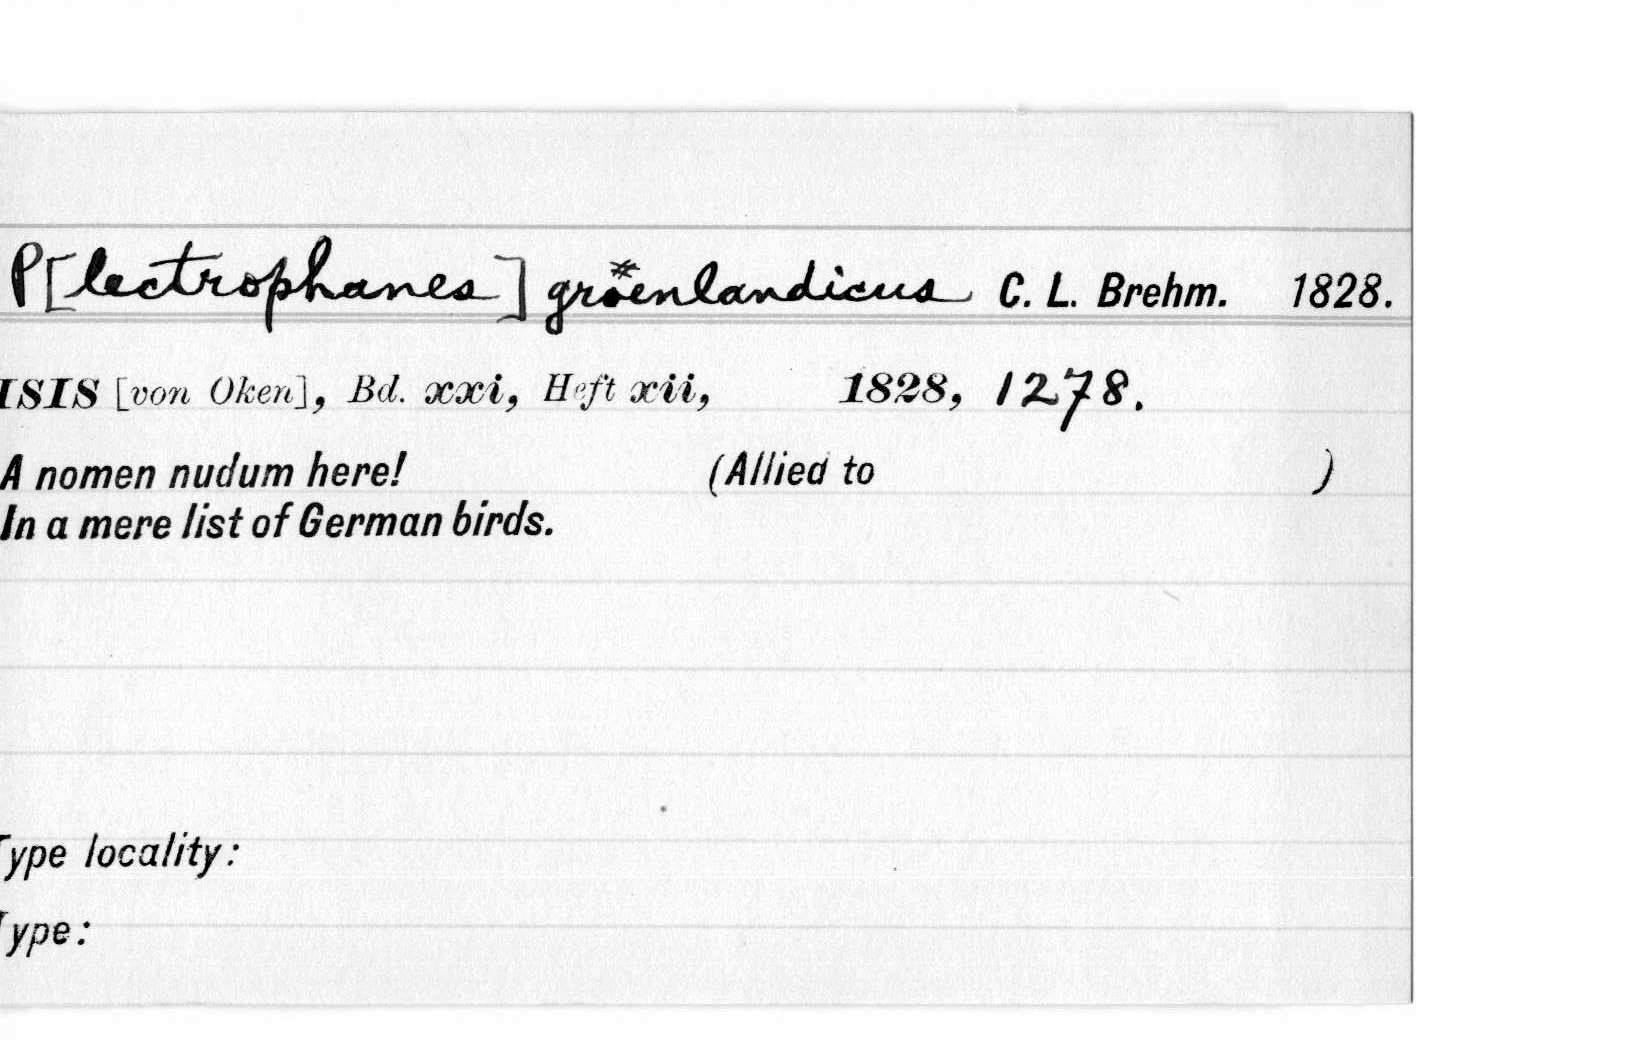 P[lectrophanes] gröenlandicus C. L. Brehm. 1828.
ISIS [von Oken], Bd. xxi, Heft xii, 1828, 1278.
A nomen nudum here! (Allied to )
In a mere list of German birds.
Type locality:
Type: